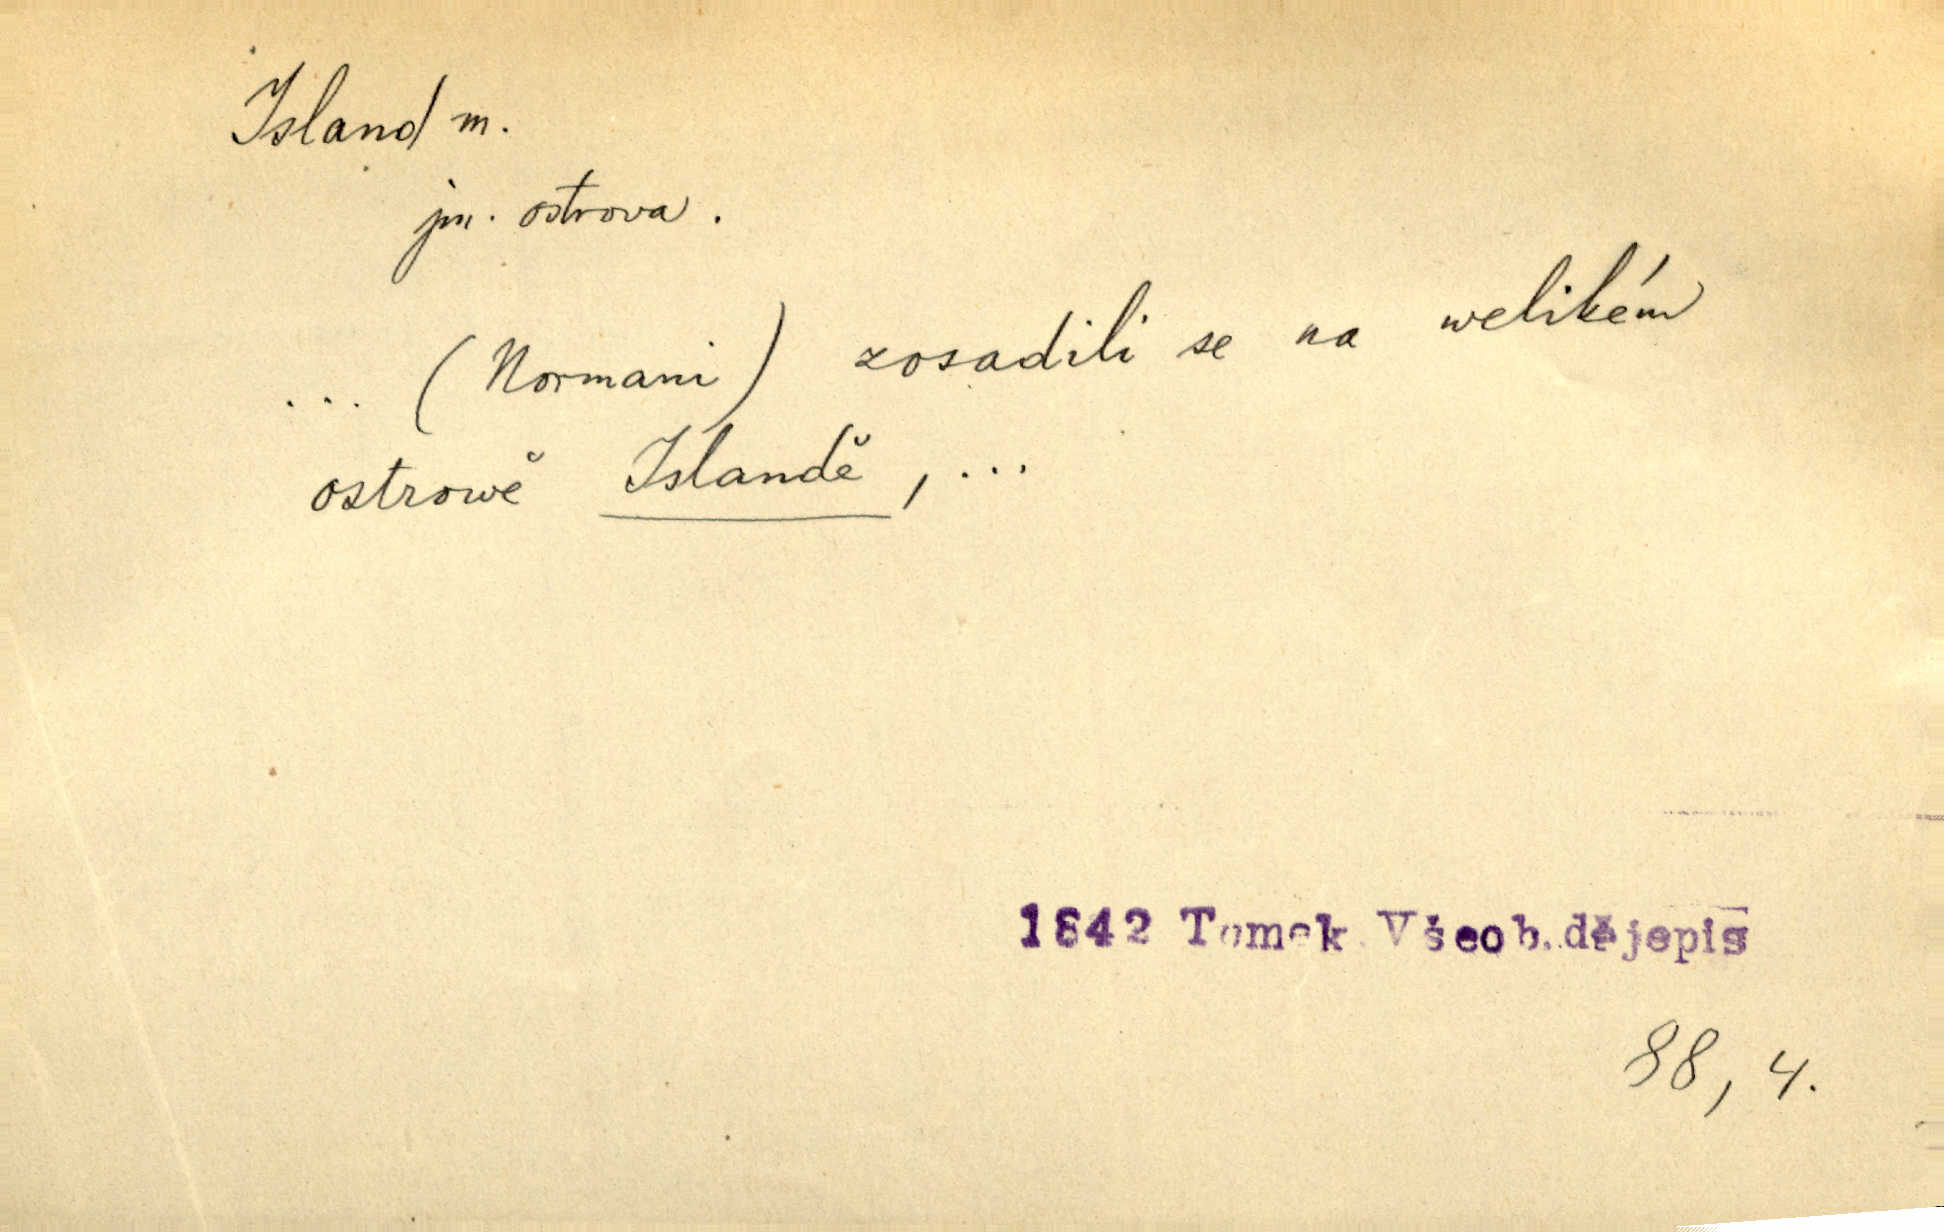 Island m.
jm. ostrova.
... (Normani) zosadili se na welikém
ostrowě Islandě, ...
1842 Tomek Všeob. dějepis
88, 4.